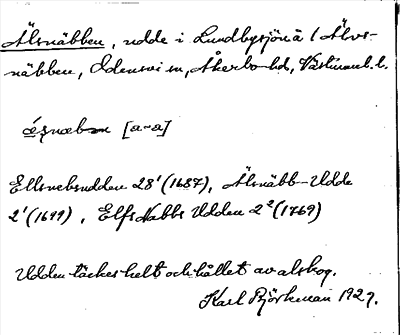 Älsnäbben, udde i Lundbysjön å / Älvs-
näbben, Odensvi sn, Åkerbo hd, Västmanl. l.
[a-a]
Ellsnebsudden 28¹ (1687), Älsnäbb-Udde
2¹ (1699), Elfs Nabbs Udden 2² (1769)
Udden täckes helt och hållet av alskog.
Karl Björkman 1927.